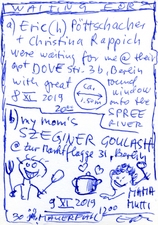 WAITING FOR:
a) Eric(h) Pöttschacher
+ Christina Rappich
were waiting for me @ their
apt DOVE Str. 3b, Berlin
with great round
9 XI 2019
20
ca. 1,50m
window
into the
SPREE
RIVER
b) my mom's
SZEGINER GOULASH
@ zur Marktflagge 31, Berlin
9 XI 2019
1200
MAMA
MUTTI
30 JR MAUERFALL